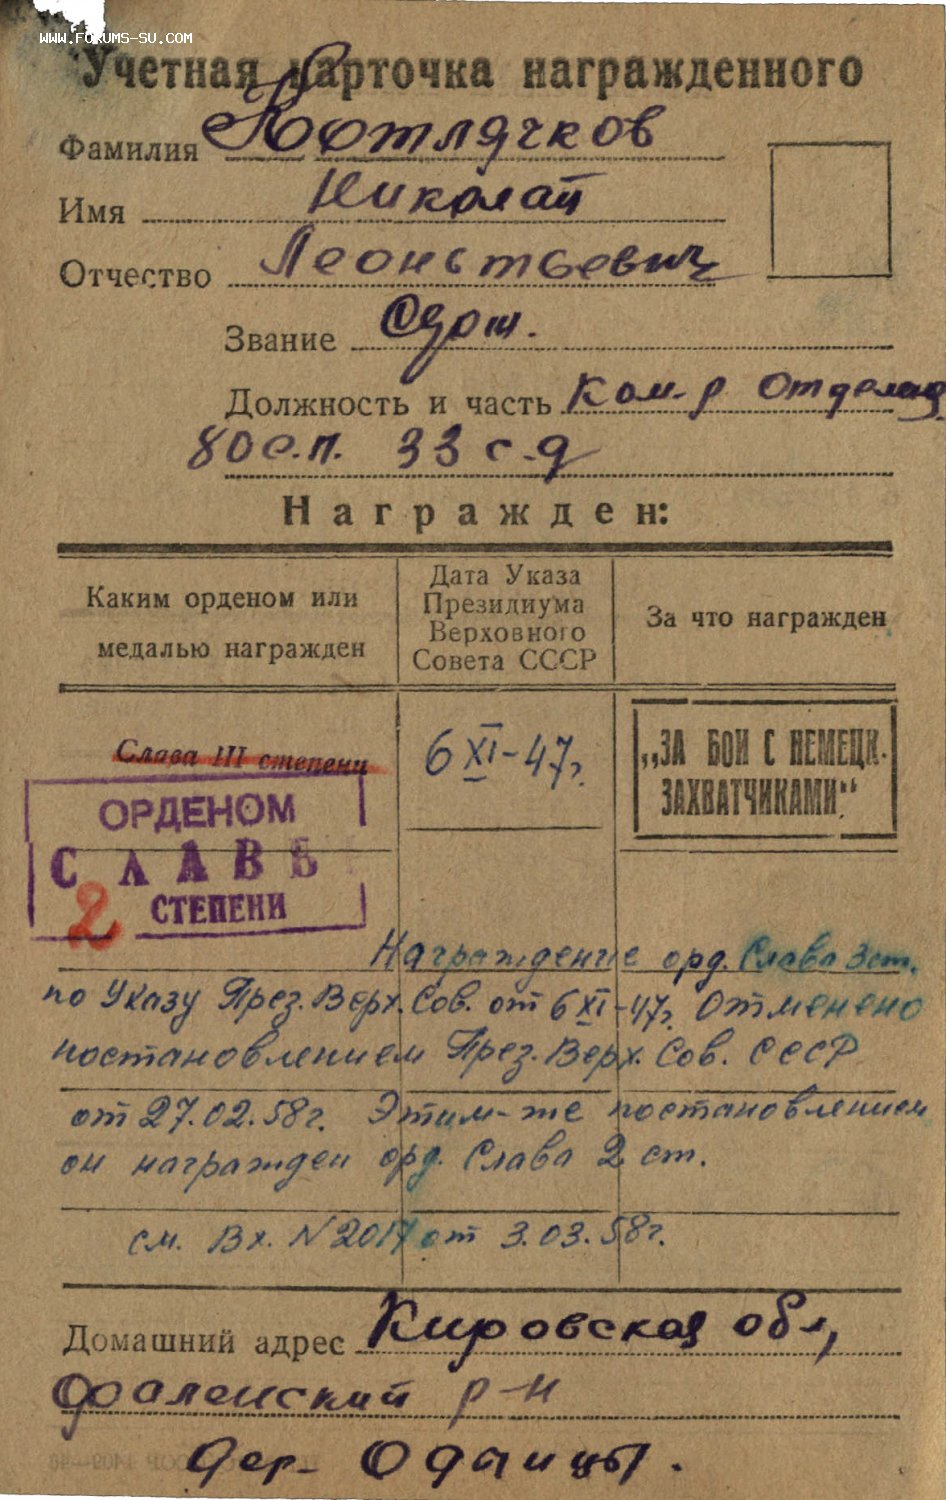 WWW.FORUMS-SU.COM
Учетная карточка награжденного
Фамилия Котлячков
Имя Николай
Отчество Леонтьевич
Звание Серж.
Должность и часть Ком-р Отделен
80 с.п. 33 с-д
Награжден:
Каким орденом или
медалью награжден
Дата Указа
Президиума
Верховного
Совета СССР
За что награжден
Слава III степени
6 XI-47г.
„ЗА БОИ С НЕМЕЦК.
ЗАХВАТЧИКАМИ“
ОРДЕНОМ
СЛАВЫ
2 СТЕПЕНИ
Награждение орд. Слава 3 ст.
по Указу През. Верх. Сов. от 6 XI-47г. Отменено
постановлением През. Верх. Сов. СССР
от 27.02.58г. Этим-же постановлением
он награжден орд. Слава 2 ст.
см. Вх. N 2017 от 3.03.58г.
Домашний адрес Кировская обл,
Фаленский р-н
дер-